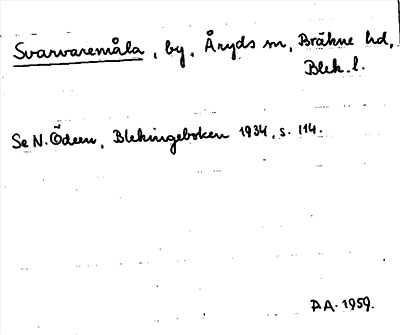 Svarvaremåla, by, Åryds sn, Bräkne hd,
Blek. l.
Se N. Ödeen, Blekingeboken 1934, s. 114.
AA. 1959.